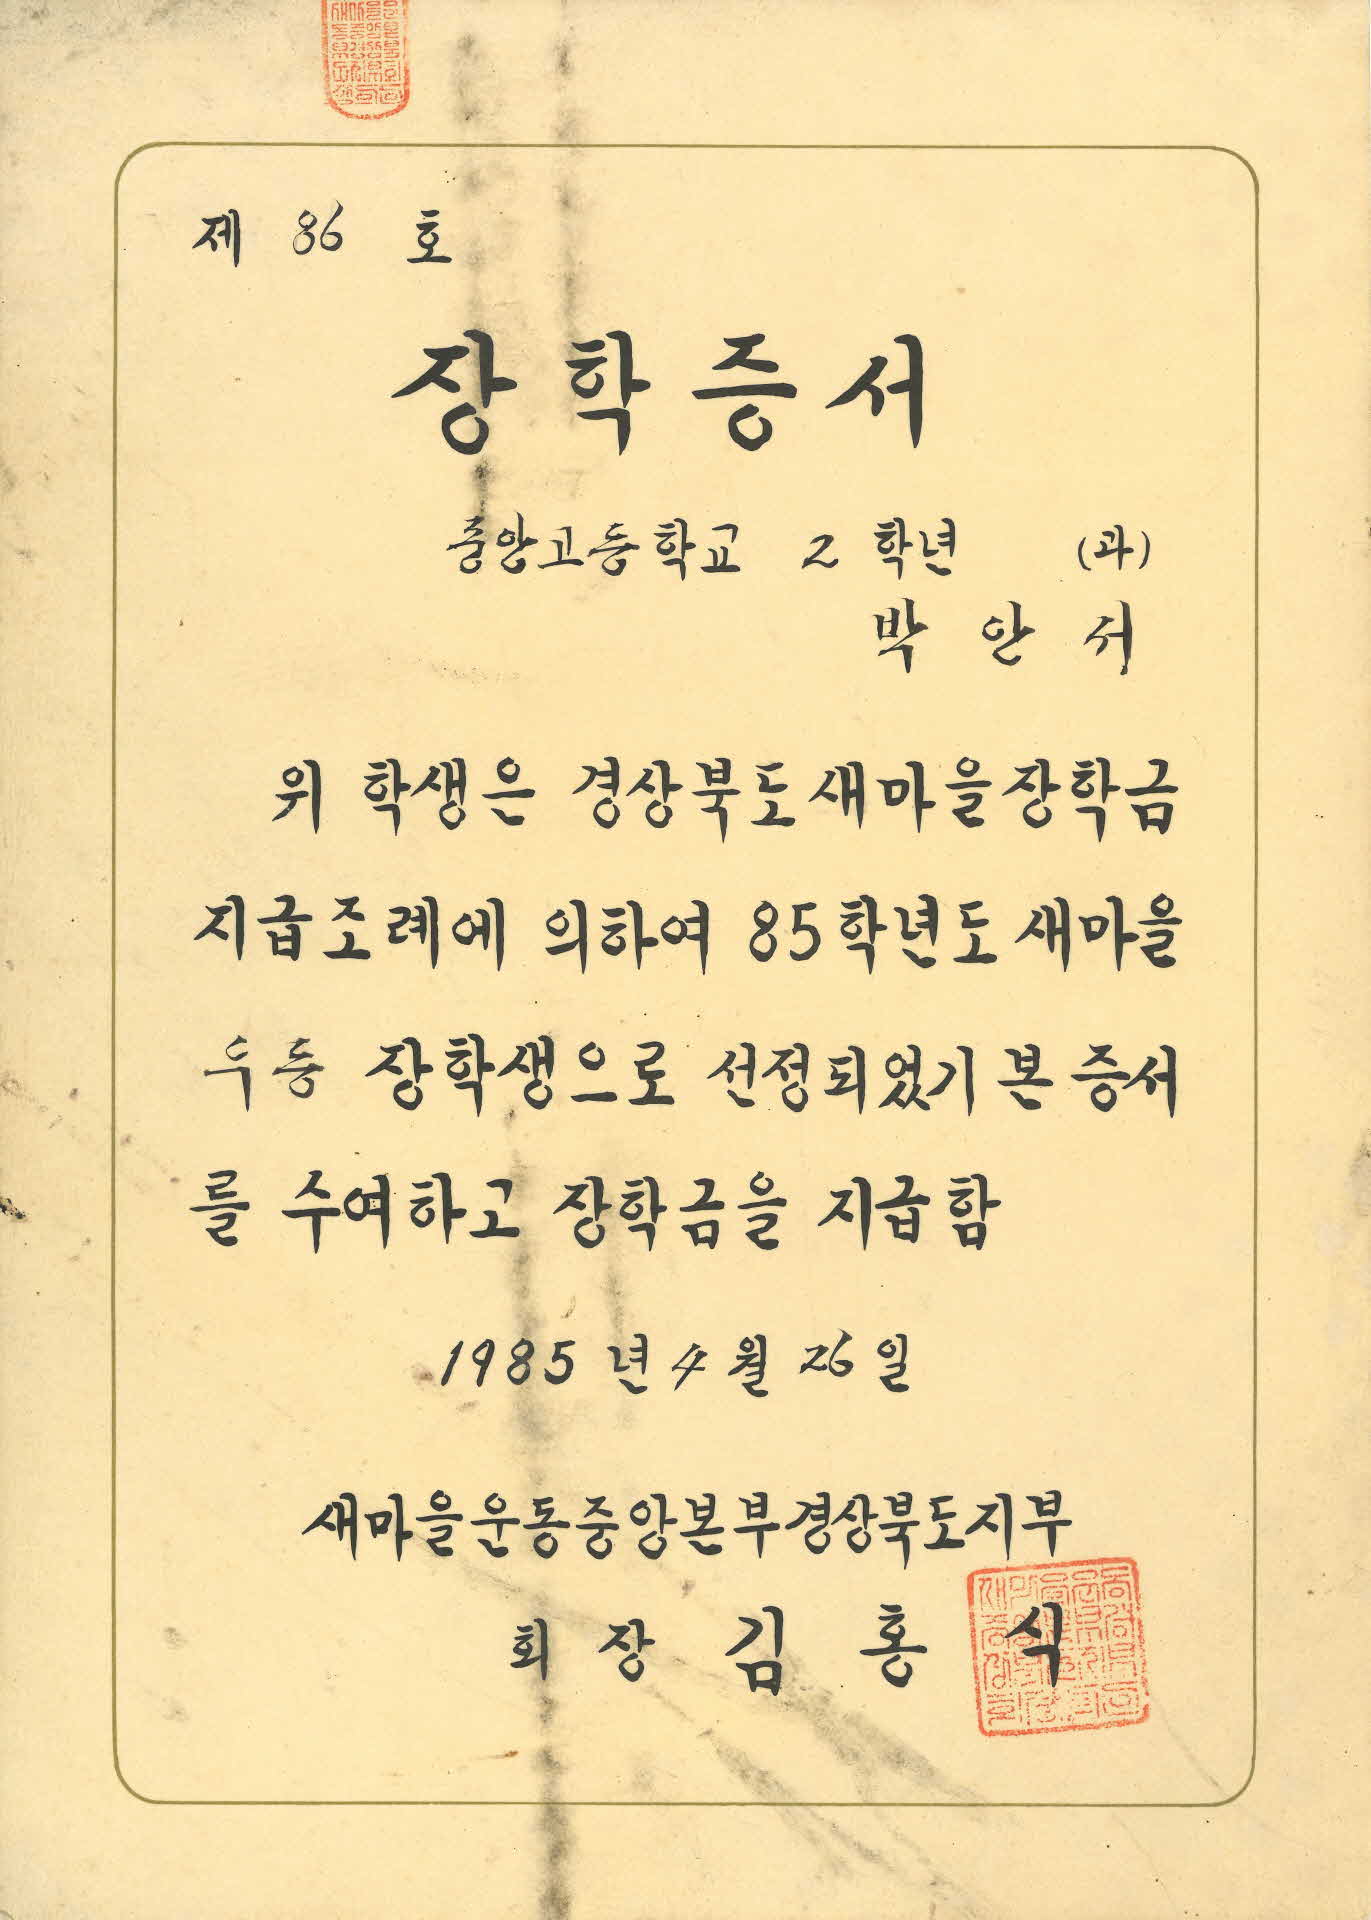 제 86 호
장학증서
중앙고등학교 2 학년 (과)
박 안 서
위 학생은 경상북도새마을장학금
지급조례에 의하여 85학년도 새마을
우등 장학생으로 선정되었기 본 증서
를 수여하고 장학금을 지급함
1985 년 4 월 26 일
새마을운동중앙본부경상북도지부
회 장 김 홍 식